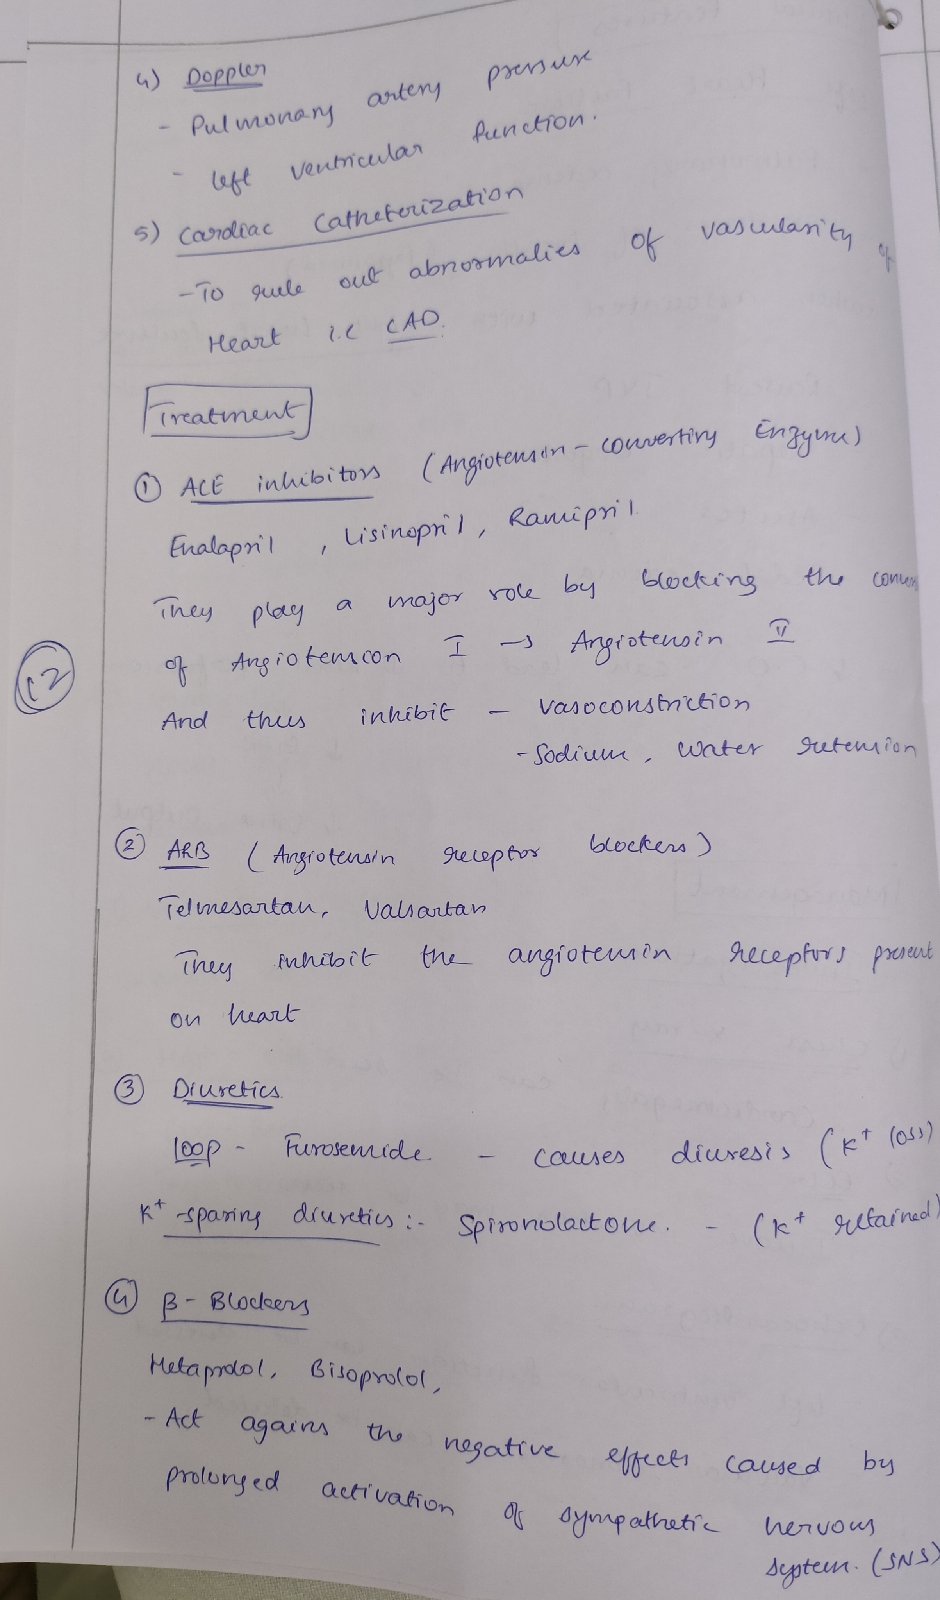 4) Doppler
- Pulmonary artery pressure
- left ventricular function.
5) Cardiac Catheterization
- To rule out abnormalies of vascularity of
Heart i.e CAD.
Treatment
① ACE inhibitors (Angiotensin - converting Enzyme)
Enalapril, Lisinopril, Ramipril
They play a major role by blocking the
of Angiotension I → Angiotensin II
12
And thus inhibit - vasoconstriction
- Sodium, water retension
② ARB (Angiotensin receptor blockers)
Telmesartan, Valsartan
They inhibit the angiotensin receptors present
on heart
③ Diuretics
Loop - Furosemide - causes diuresis (K+ loss)
K+ -sparing diuretics :- Spironolactone. - (K+ retained)
④ β - Blockers
Metaprolol, Bisoprolol,
- Act agains the negative effects caused by
prolonged activation of sympathetic nervous
system. (SNS)